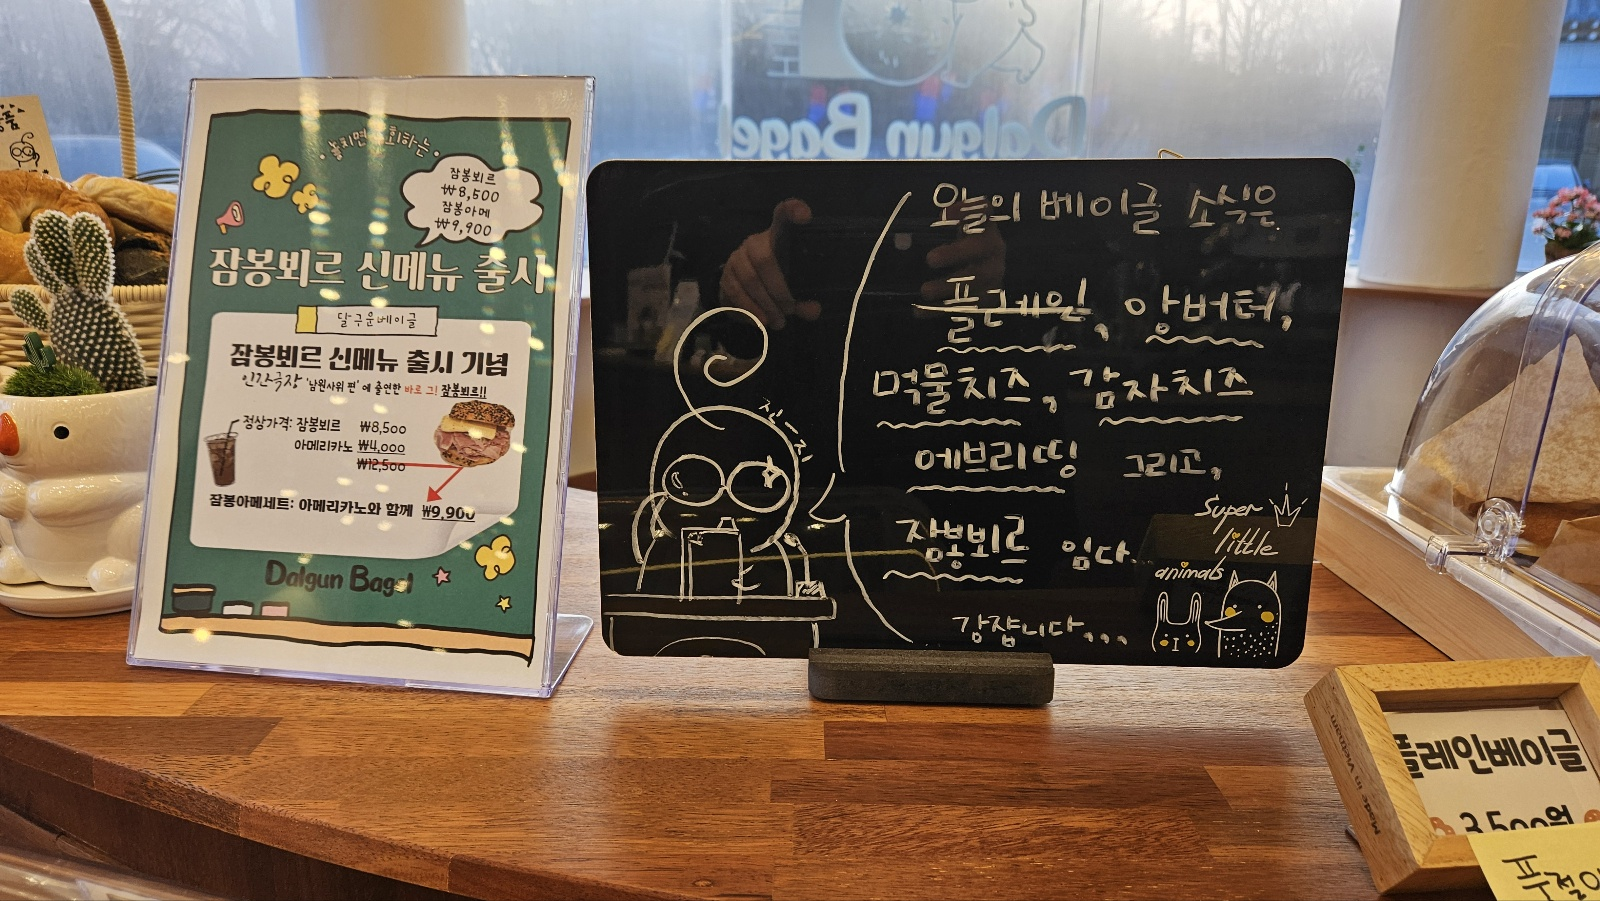 놓치면 후회하는
잠봉뵈르
₩8,500
잠봉아메
₩9,900
잠봉뵈르 신메뉴 출시
달구운베이글
잠봉뵈르 신메뉴 출시 기념
인간극장 '남원사위 편' 에 출연한 바로 그! 잠봉뵈르!!
정상가격: 잠봉뵈르 ₩8,500
아메리카노 ₩4,000
₩12,500
잠봉아메세트: 아메리카노와 함께 ₩9,900
Dalgun Bagel
Dalgun Bagel
오늘의 베이글 소식은
플레인, 앙버터,
먹물치즈, 감자치즈
에브리띵 그리고,
잠봉뵈르 임다.
감쟙니다...
진-지
Super
little
animals
플레인베이글
3,500원
Made in Vietnam